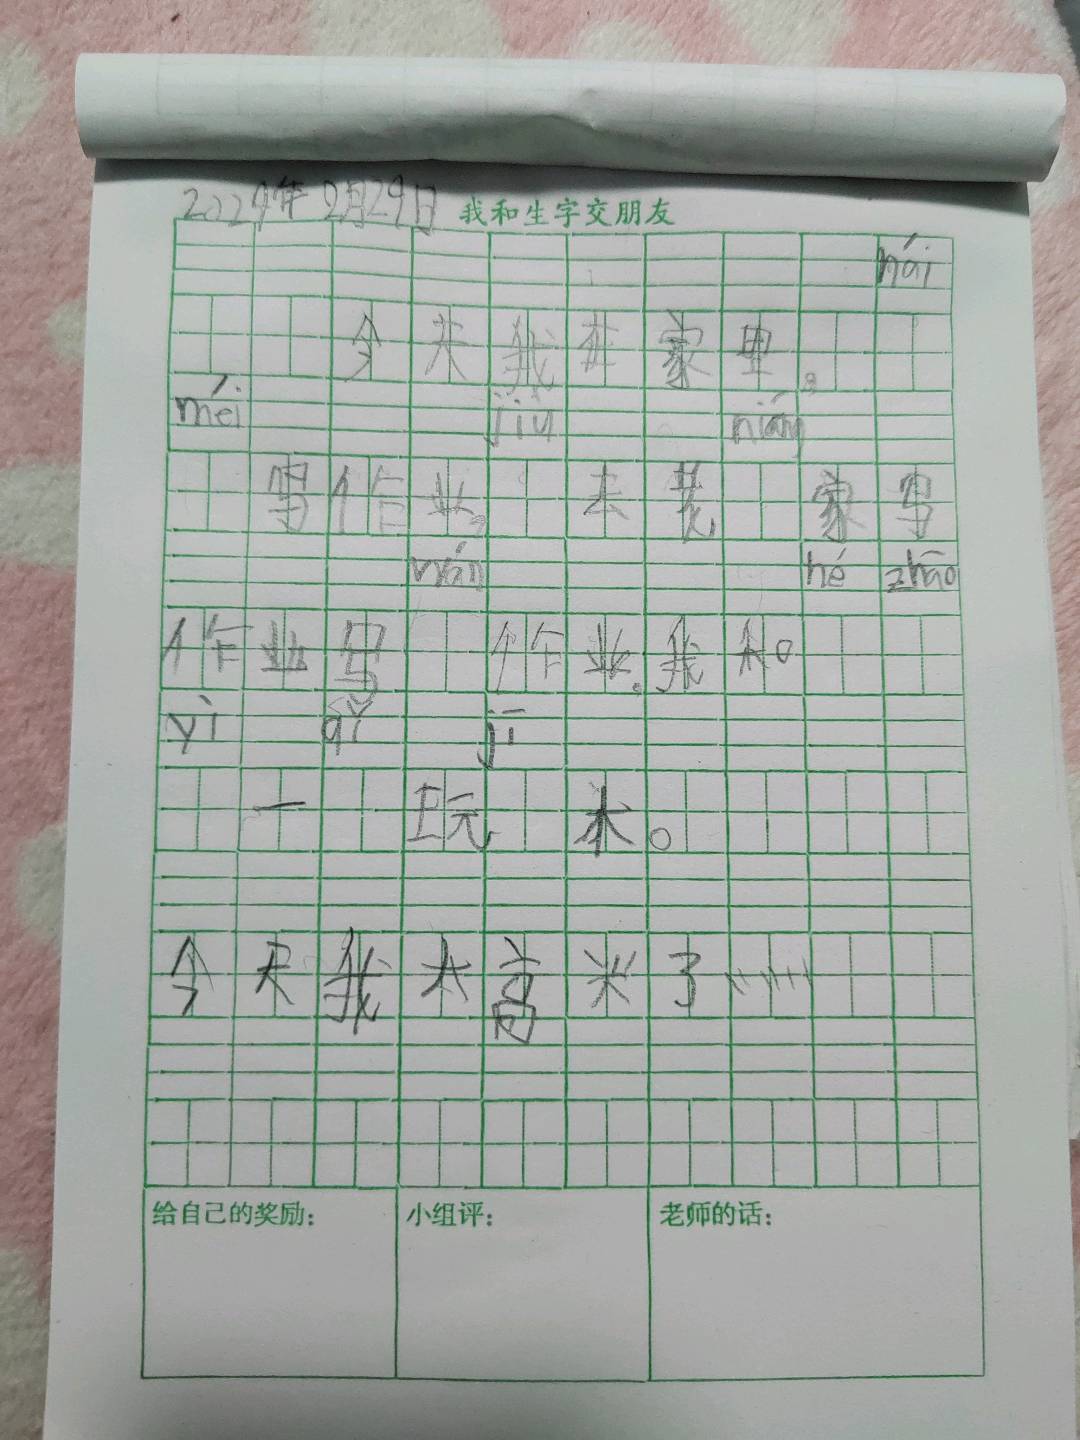 2024年2月29日 我和生字交朋友
nái
今天我在家里。
méi jiu niáng
写作业, 去 家写
wán hé zhāo
作业写 作业。我和
yì qǐ jī
一 玩 木。
今天我太高兴了……
给自己的奖励: 小组评: 老师的话: